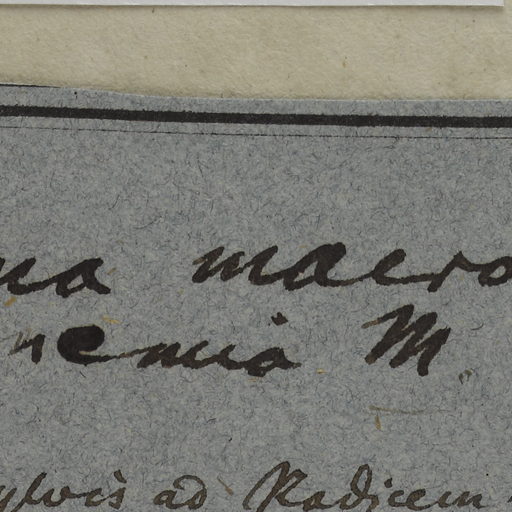 na macro
nemia M
ylvis ad Radicem